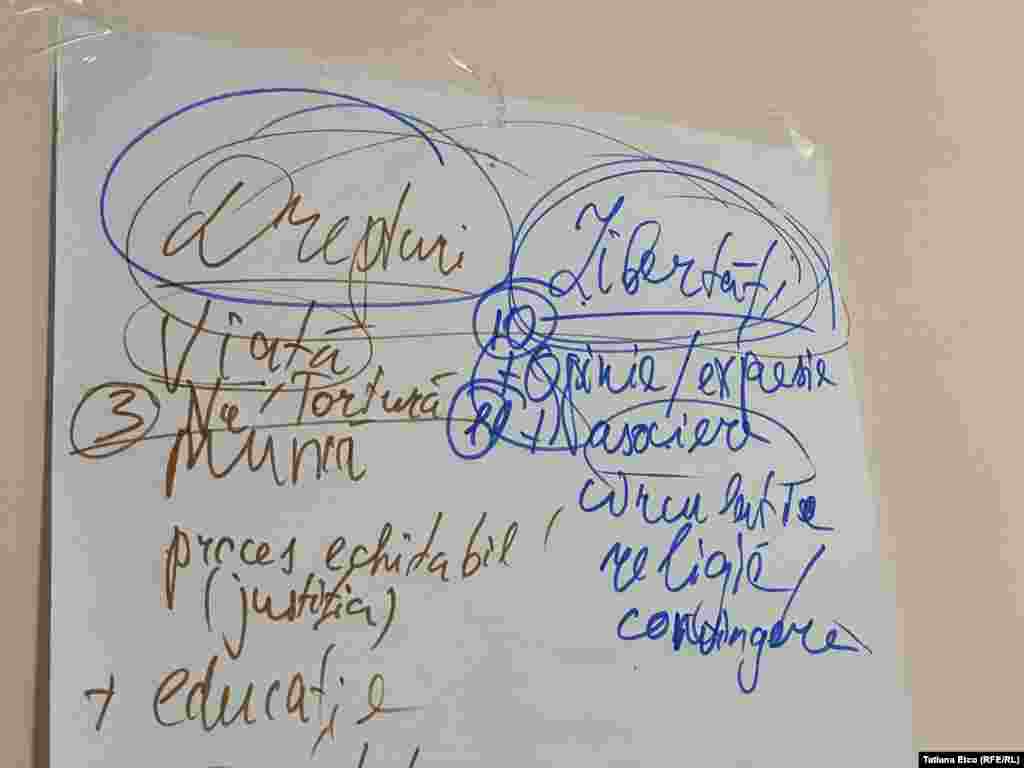 Drepturi
Viață
3 Nu / Tortură
Muncă
proces echitabil /
(justiția)
+ educație
Libertăți
10
+ Opinie / expresie
11 + asociere
circulație
religie /
convingere
Tatiana Etco (RFE/RL)